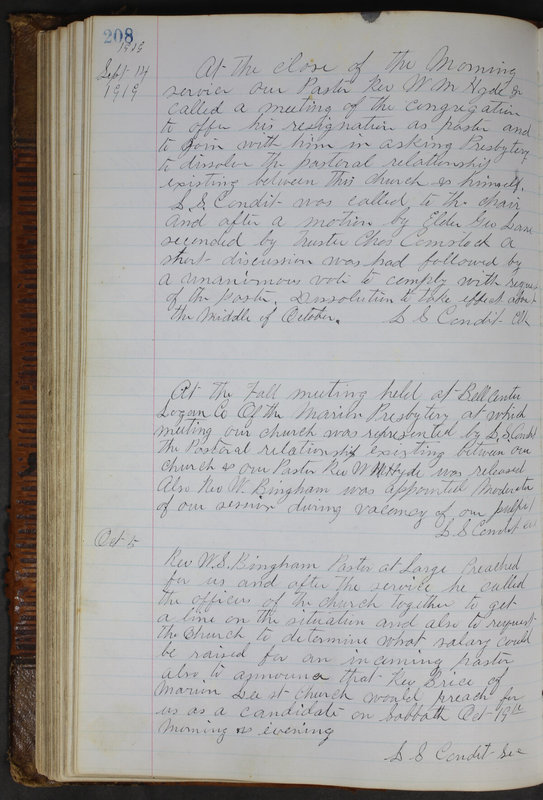 208
1919
Sept 14
1919
At the close of the Morning
service our Pastor Rev W M Hyde
called a meeting of the congregation
to offer his resignation as pastor and
to join with him in asking Presbytery
to dissolve the pastoral relationship
existing between this church & himself.
L. S. Condit was called to the chair
and after a motion by Elder Geo Lane
seconded by Trustee Chas Comstock a
short discussion was had followed by
a unanimous vote to comply with request
of the pastor. Dissolution to take effect about
the Middle of October. L S Condit Clk
At the Fall meeting held at Bellcenter
Logan Co Of the Marion Presbytery at which
meeting our church was represented by L. S. Condit
the Pastoral relationship existing between our
church & our Pastor Rev W M Hyde was released
Also Rev W. Bingham was appointed Moderator
of our session during vacancy of our pulpit
L S Condit Clk
Oct 5
Rev W. S. Bingham Pastor at Large Preached
for us and after the service he called
the officers of the church together to get
a line on the situation and also to request
the Church to determine what salary could
be raised for an incoming pastor
also to announce that Rev Brice of
Marion Lee st church would preach for
us as a candidate on Sabbath Oct 19th
Morning & evening
L S Condit Sec